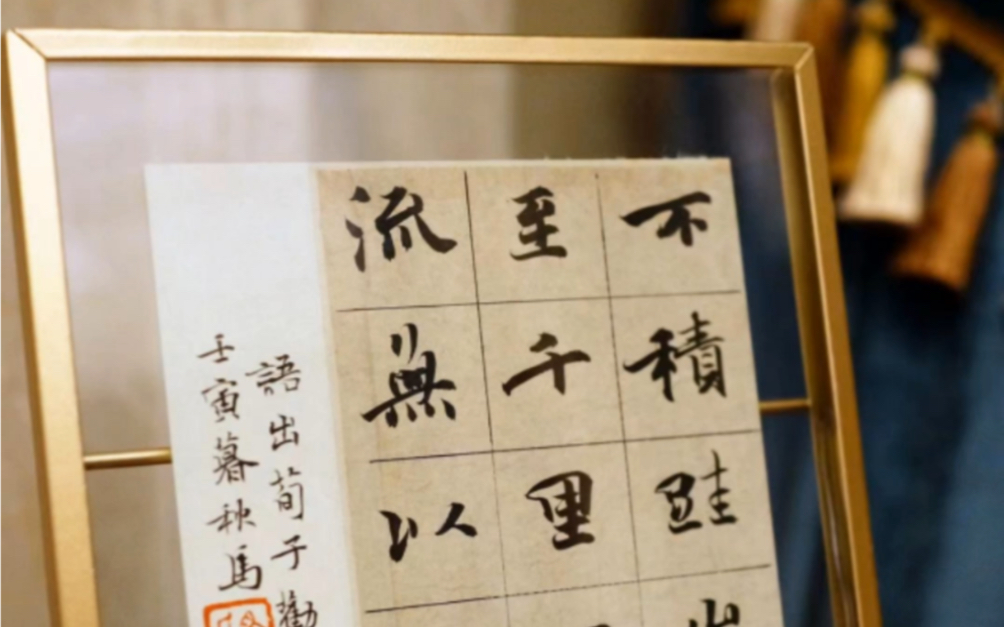 不積跬
至千里
流無以
語出荀子勸
壬寅暮秋馬